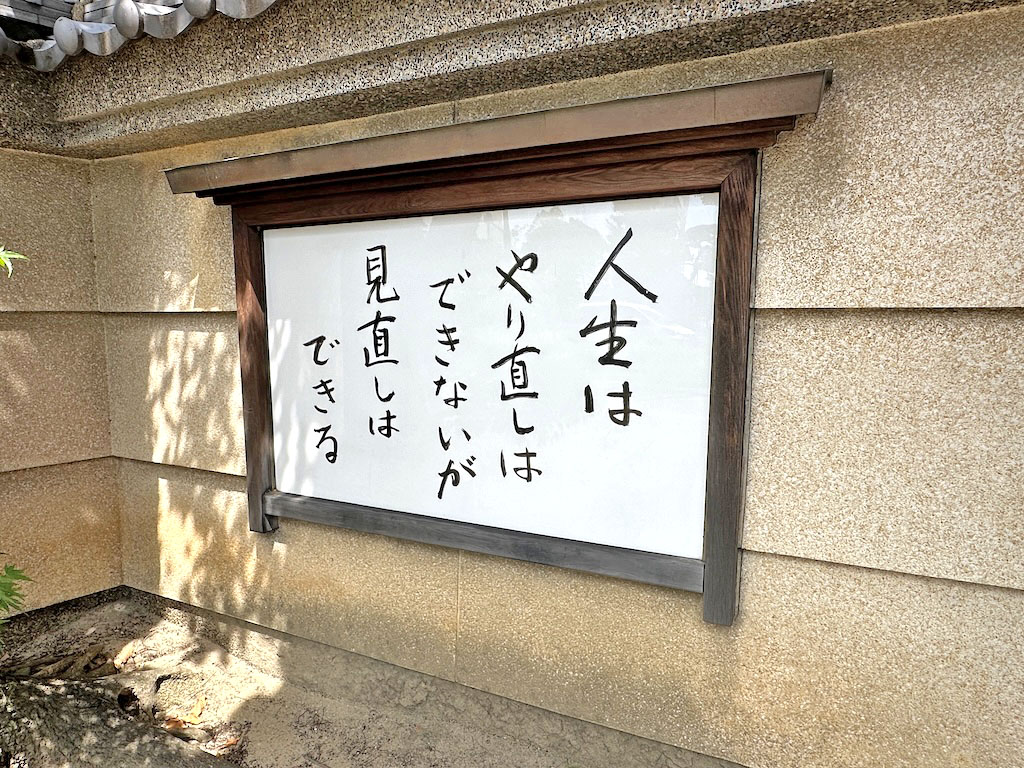 人生は
やり直しは
できないが
見直しは
できる